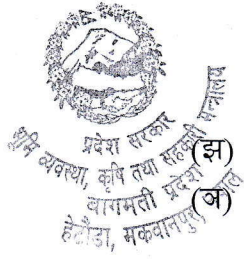 प्रदेश सरकार
भूमि व्यवस्था, कृषि तथा सहकारी मन्त्रालय
बागमती प्रदेश
हेटौंडा, मकवानपुर, नेपाल
(झ)
(ञ)